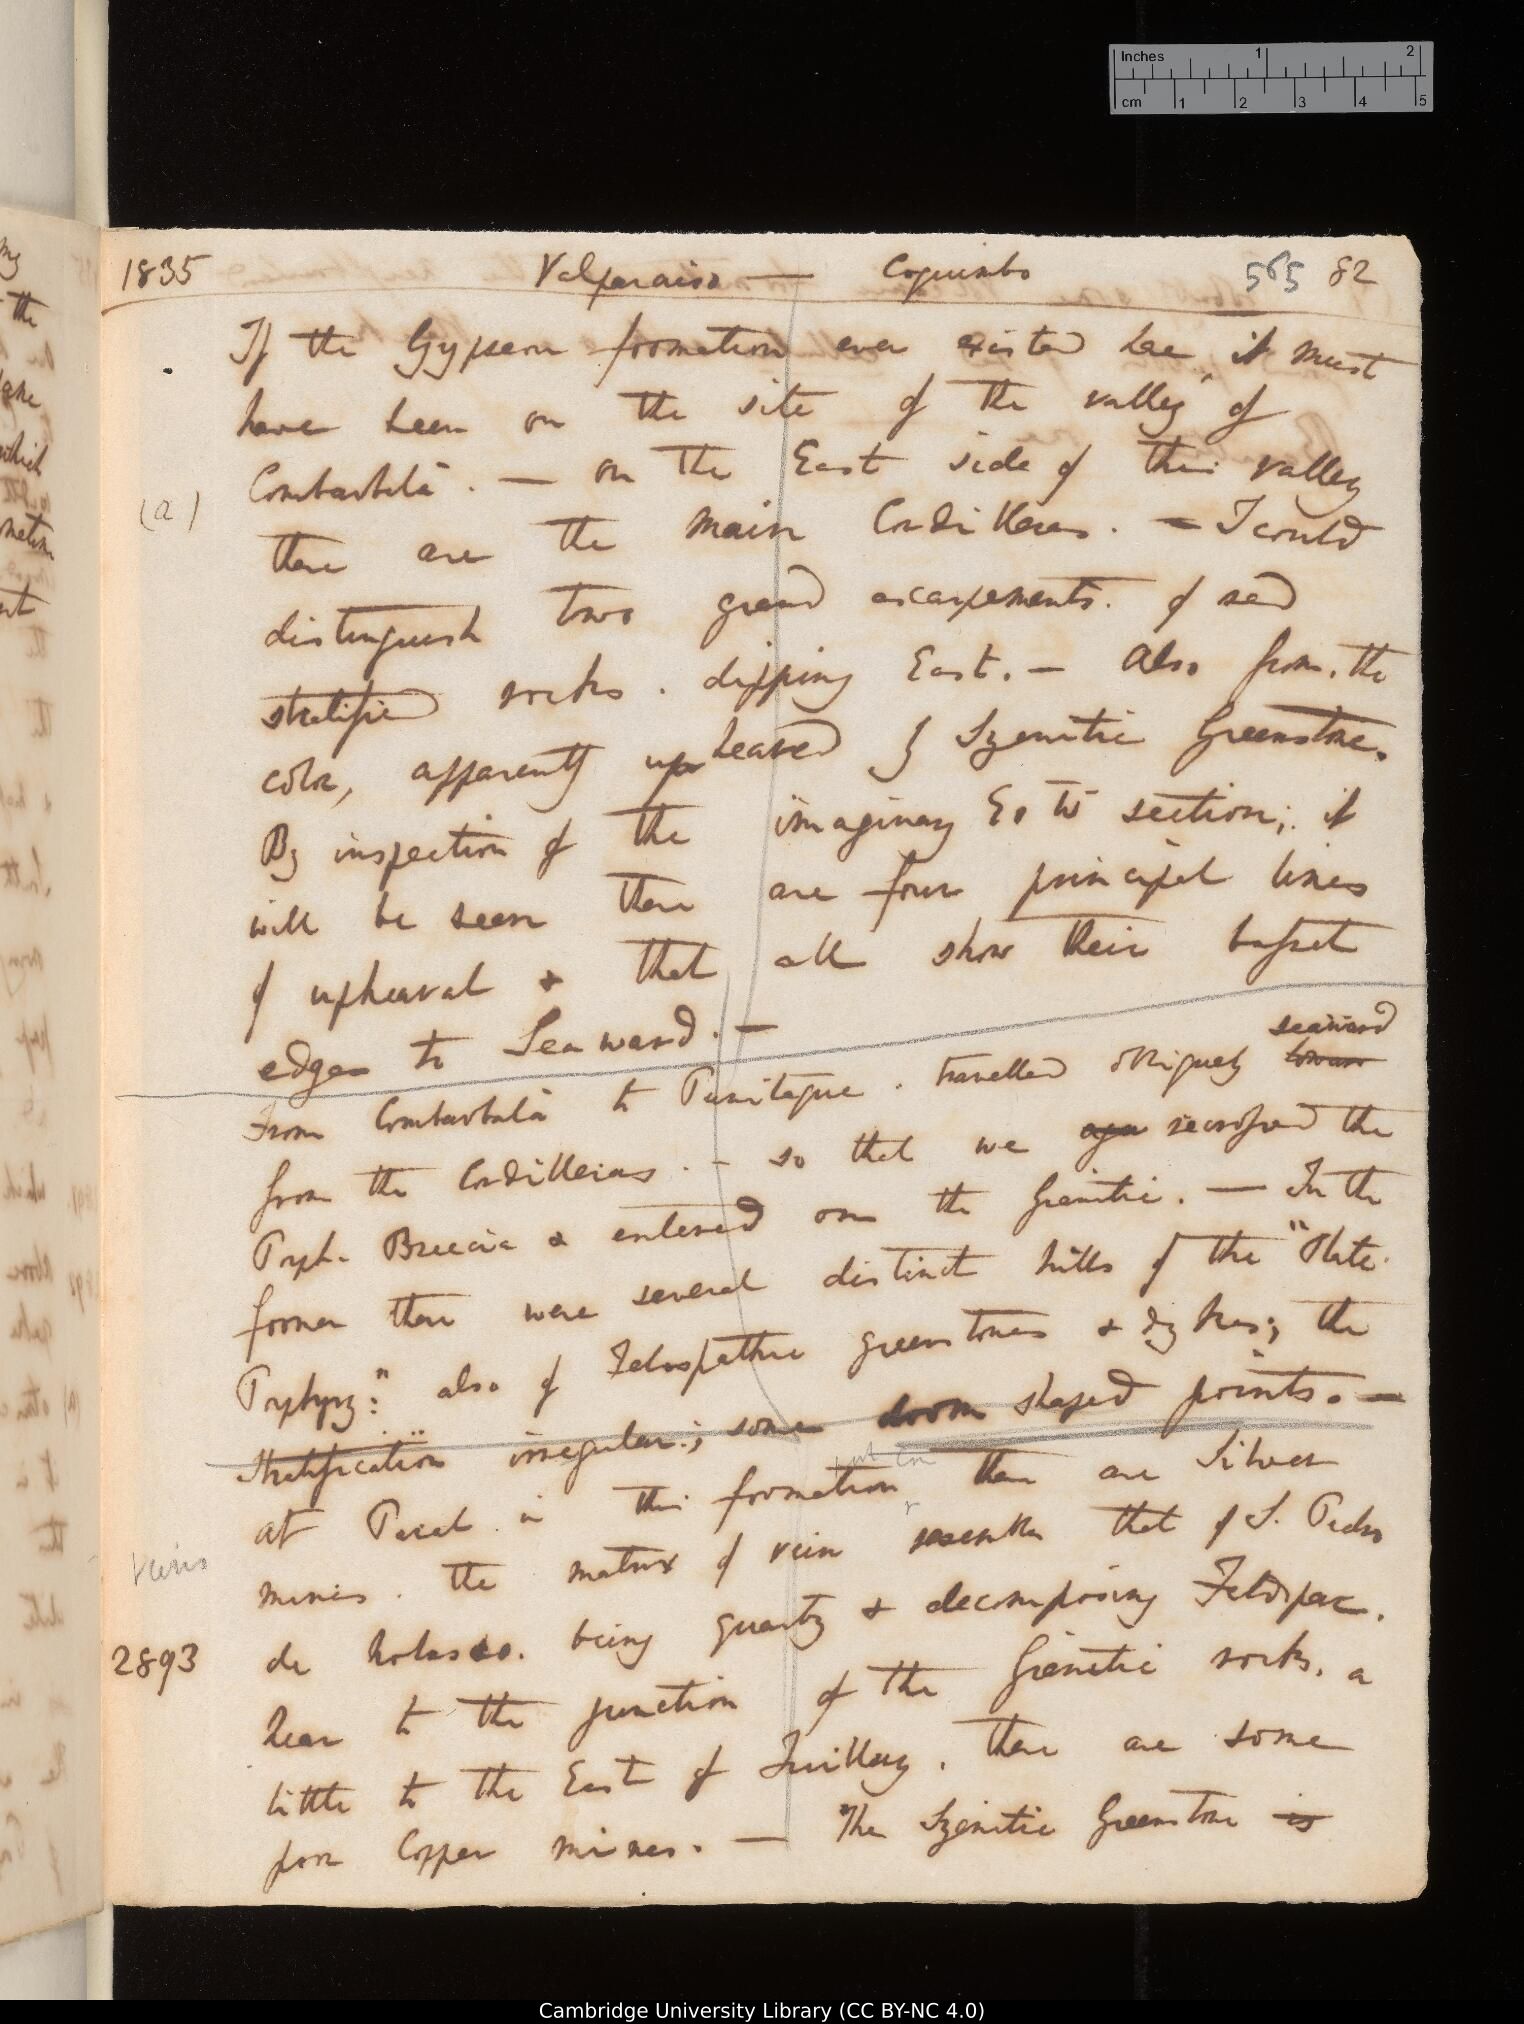 Inches 1 2
cm 1 2 3 4 5
1835 Valparaiso — Coquimbo 565 82
If the Gypseous formation ever existed here it must
have been on the site of the valley of
Combarbalà. — on the East side of this valley
(a)
there are the main Cordilleras. — I could
distinguish two grand escarpements. of red
stratified rocks. dipping East. — Also from. the
color, apparently upheaved by Syenitic Greenstone.
By inspection of the imaginary E. to W section; it
will be seen there are four principal lines
of upheaval & that all show their basset
edges to Seaward. —
seaward
From Combarbalà to Punitaque. travelled obliquely
from the Cordilleras. — so that we recrossed the
Porph. Breccia & entered on the Granitic. — In the
former there were several distinct hills of the "Plate.
Porphyry:" also of Feldspathic greenstones & dykes; the
stratification irregular; some doom shaped points. —
at Paral in this formation there are Silver
veins
mines. the matrix of vein resembles that of S. Pedro
2893 de Nolasco. being quartz & decomposing Feldspar.
Near to the junction of the Granitic rocks. a
little to the East of , there are some
poor Copper mines. — The Syenitic Greenstone is
Cambridge University Library (CC BY-NC 4.0)